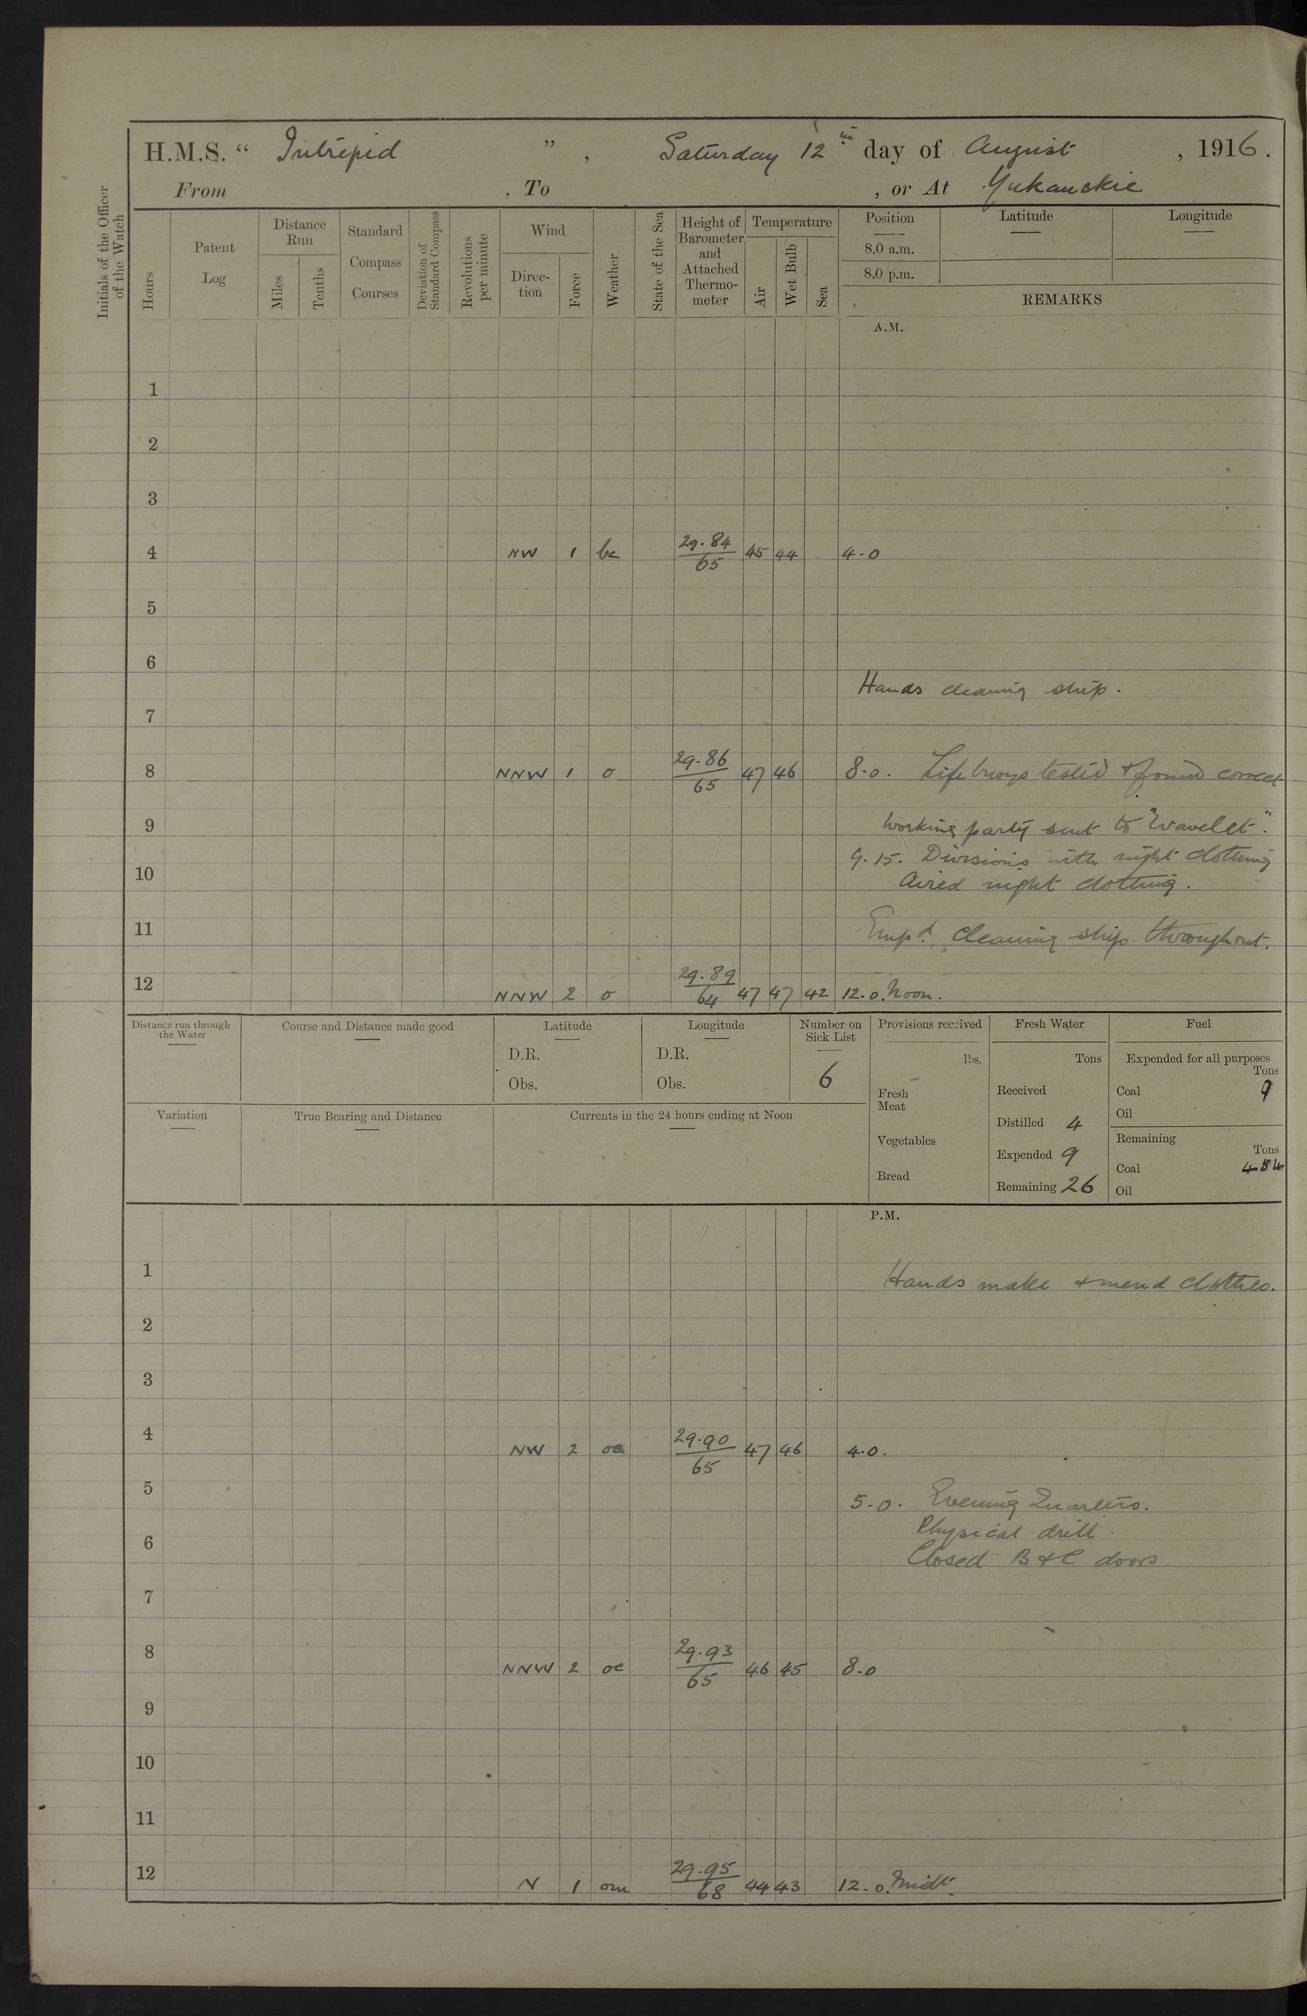 H.M.S. " Intrepid ", Saturday 12th day of August, 1916.
From , To , or At Yukanskie
Initials of the Officer of the Watch
Hours
Patent Log
Distance Run
Miles
Tenths
Standard Compass Courses
Deviation of Standard Compass
Revolutions per minute
Wind
Direc-tion
Force
Weather
State of the Sea
Height of Barometer and Attached Thermo-meter
Temperature
Air
Wet Bulb
Sea
Position Latitude Longitude
8.0 a.m.
8.0 p.m.
REMARKS
A.M.
1
2
3
4 NW 1 bc 29.84/65 45 44 4.0
5
6
Hands cleaning ship.
7
8 NNW 1 o 29.86/65 47 46 8.0. Lifebuoys tested & found correct
9 Working party sent to "Wavelet".
9.15. Divisions with night clothing
10 Aired night clothing.
11 Empd. cleaning ship throughout.
12 NNW 2 o 29.89/64 47 47 42 12.0. Noon.
Distance run through the Water
Course and Distance made good
Latitude
D.R.
Obs.
Longitude
D.R.
Obs.
Number on Sick List
6
Variation
True Bearing and Distance
Currents in the 24 hours ending at Noon
Provisions received
lbs.
Fresh Meat
Vegetables
Bread
Fresh Water
Tons
Received
Distilled 4
Expended 9
Remaining 26
Fuel
Expended for all purposes
Tons
Coal 9
Oil
Remaining
Tons
Coal 454
Oil
P.M.
1 Hands make & mend clothes.
2
3
4 NW 2 oc 29.90/65 47 46 4.0.
5 5.0. Evening Quarters.
Physical drill.
6 Closed B & C doors
7
8 NNW 2 oc 29.93/65 46 45 8.0
9
10
11
12 N 1 om 29.95/68 44 43 12.0. Midt.